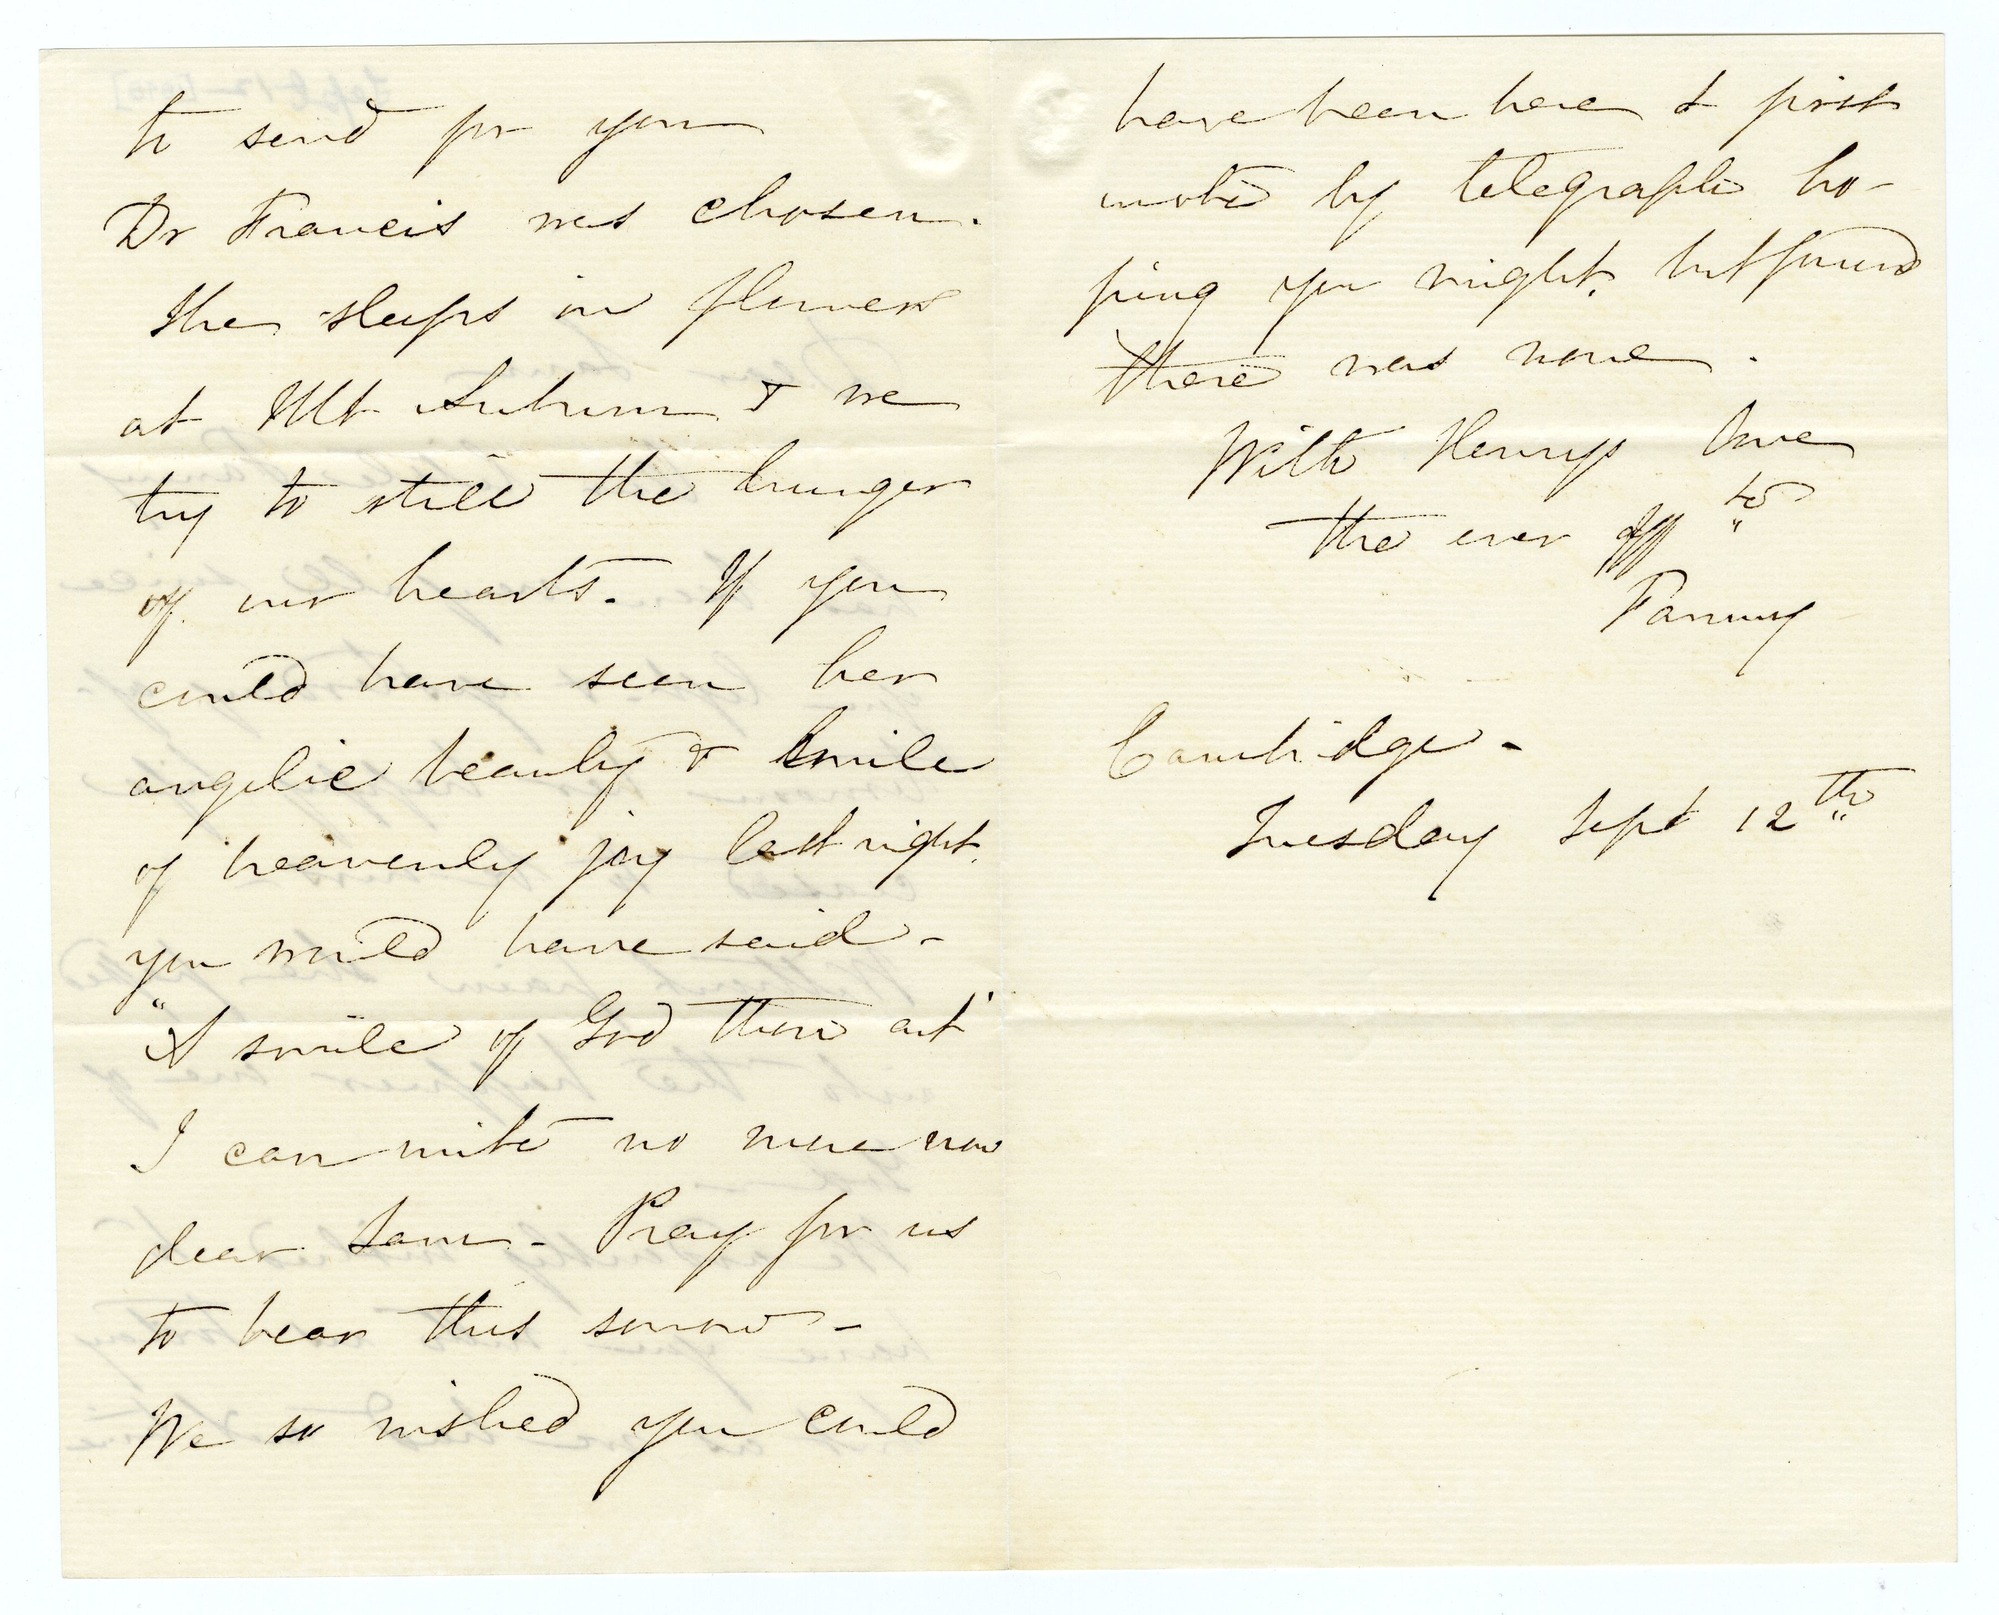 to send for you
Dr Francis was chosen.
She sleeps in flowers
at Mt Auburn & we
try to still the hunger
of our hearts. If you
could have seen her
angelic beauty & smile
of heavenly joy last night,
you would have said -
"A smile of God thou art"
I can write no more now
dear Sam - Pray for us
to bear this sorrow -
We so wished you could
have been here & first
wrote by telegraph ho-
ping you might, but found
there was none.
With Henrys love
the ever aff te
Fanny
Cambridge -
Tuesday Sept 12th